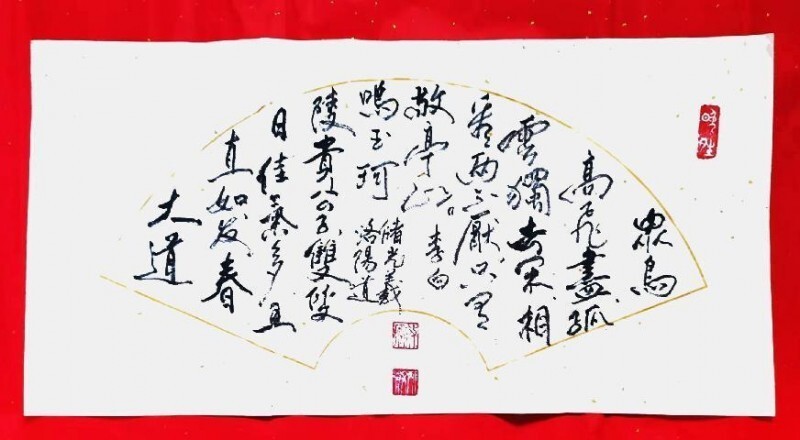 眾鳥
高飛盡孤
雲獨去闲相
看兩不厭只有
敬亭山。
李白
大道
直如发春
日佳氣多五
陵貴公子雙雙
鳴玉珂
洛陽道
储光羲